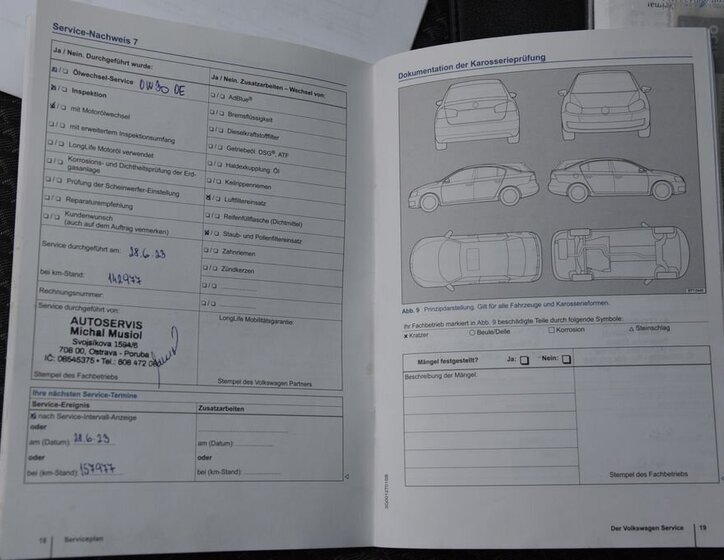 Service-Nachweis 7
Ja / Nein. Durchgeführt wurde:
Ölwechsel-Service
Inspektion
mit Motorölwechsel
mit erweitertem Inspektionsumfang
LongLife Motoröl verwendet
Korrosions- und Dichtheitsprüfung der Erd-
gasanlage
Prüfung der Scheinwerfer-Einstellung
Reparaturempfehlung
Kundenwunsch
(auch auf dem Auftrag vermerken)
Service durchgeführt am: 28.6.23
bei km-Stand: 142977
Rechnungsnummer:
Service durchgeführt von:
AUTOSERVIS
Michal Musiol
Svojsíkova 1594/6
708 00, Ostrava - Poruba
IČ: 08545375 • Tel.: 608 472
Stempel des Fachbetriebs
Ja / Nein. Zusatzarbeiten – Wechsel von:
AdBlue®
Bremsflüssigkeit
Dieselkraftstofffilter
Getriebeöl: DSG®, ATF
Haldexkupplung: Öl
Keilrippenriemen
Luftfiltereinsatz
Reifenfüllflasche (Dichtmittel)
Staub- und Pollenfiltereinsatz
Zahnriemen
Zündkerzen
LongLife Mobilitätsgarantie:
Stempel des Volkswagen Partners
Ihre nächsten Service-Termine
Service-Ereignis
nach Service-Intervall-Anzeige
oder
am (Datum): 28.6.23
oder
bei (km-Stand): 157977
Zusatzarbeiten
am (Datum):
oder
bei (km-Stand):
18 Serviceplan
Dokumentation der Karosserieprüfung
Abb. 9 Prinzipdarstellung. Gilt für alle Fahrzeuge und Karosserieformen.
Ihr Fachbetrieb markiert in Abb. 9 beschädigte Teile durch folgende Symbole:
x Kratzer ○ Beule/Delle □ Korrosion △ Steinschlag
Mängel festgestellt? Ja: Nein:
Beschreibung der Mängel:
Stempel des Fachbetriebs
Der Volkswagen Service 19